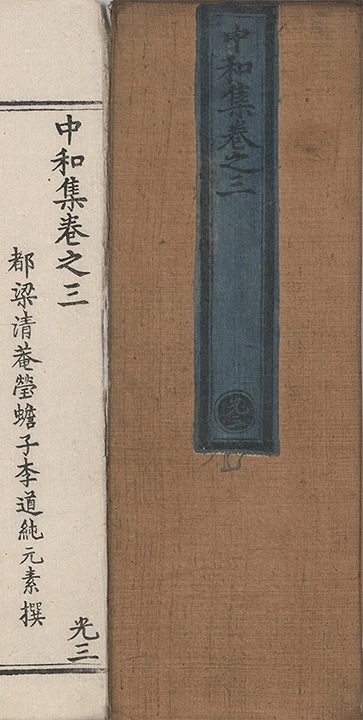 中和集卷之三
光三
中和集卷之三
都梁清菴瑩蟾子李道純元素撰
光三